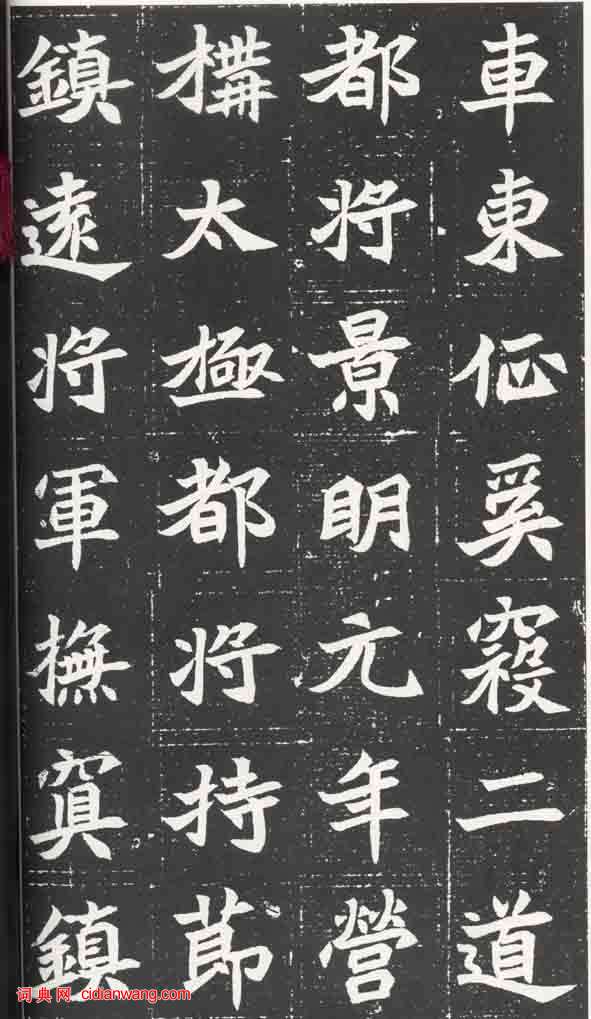 車東征奚寇二道
都将景眀元年營
構太極都将持節
鎮遠将軍撫冥鎮
词典网 cidianwang.com